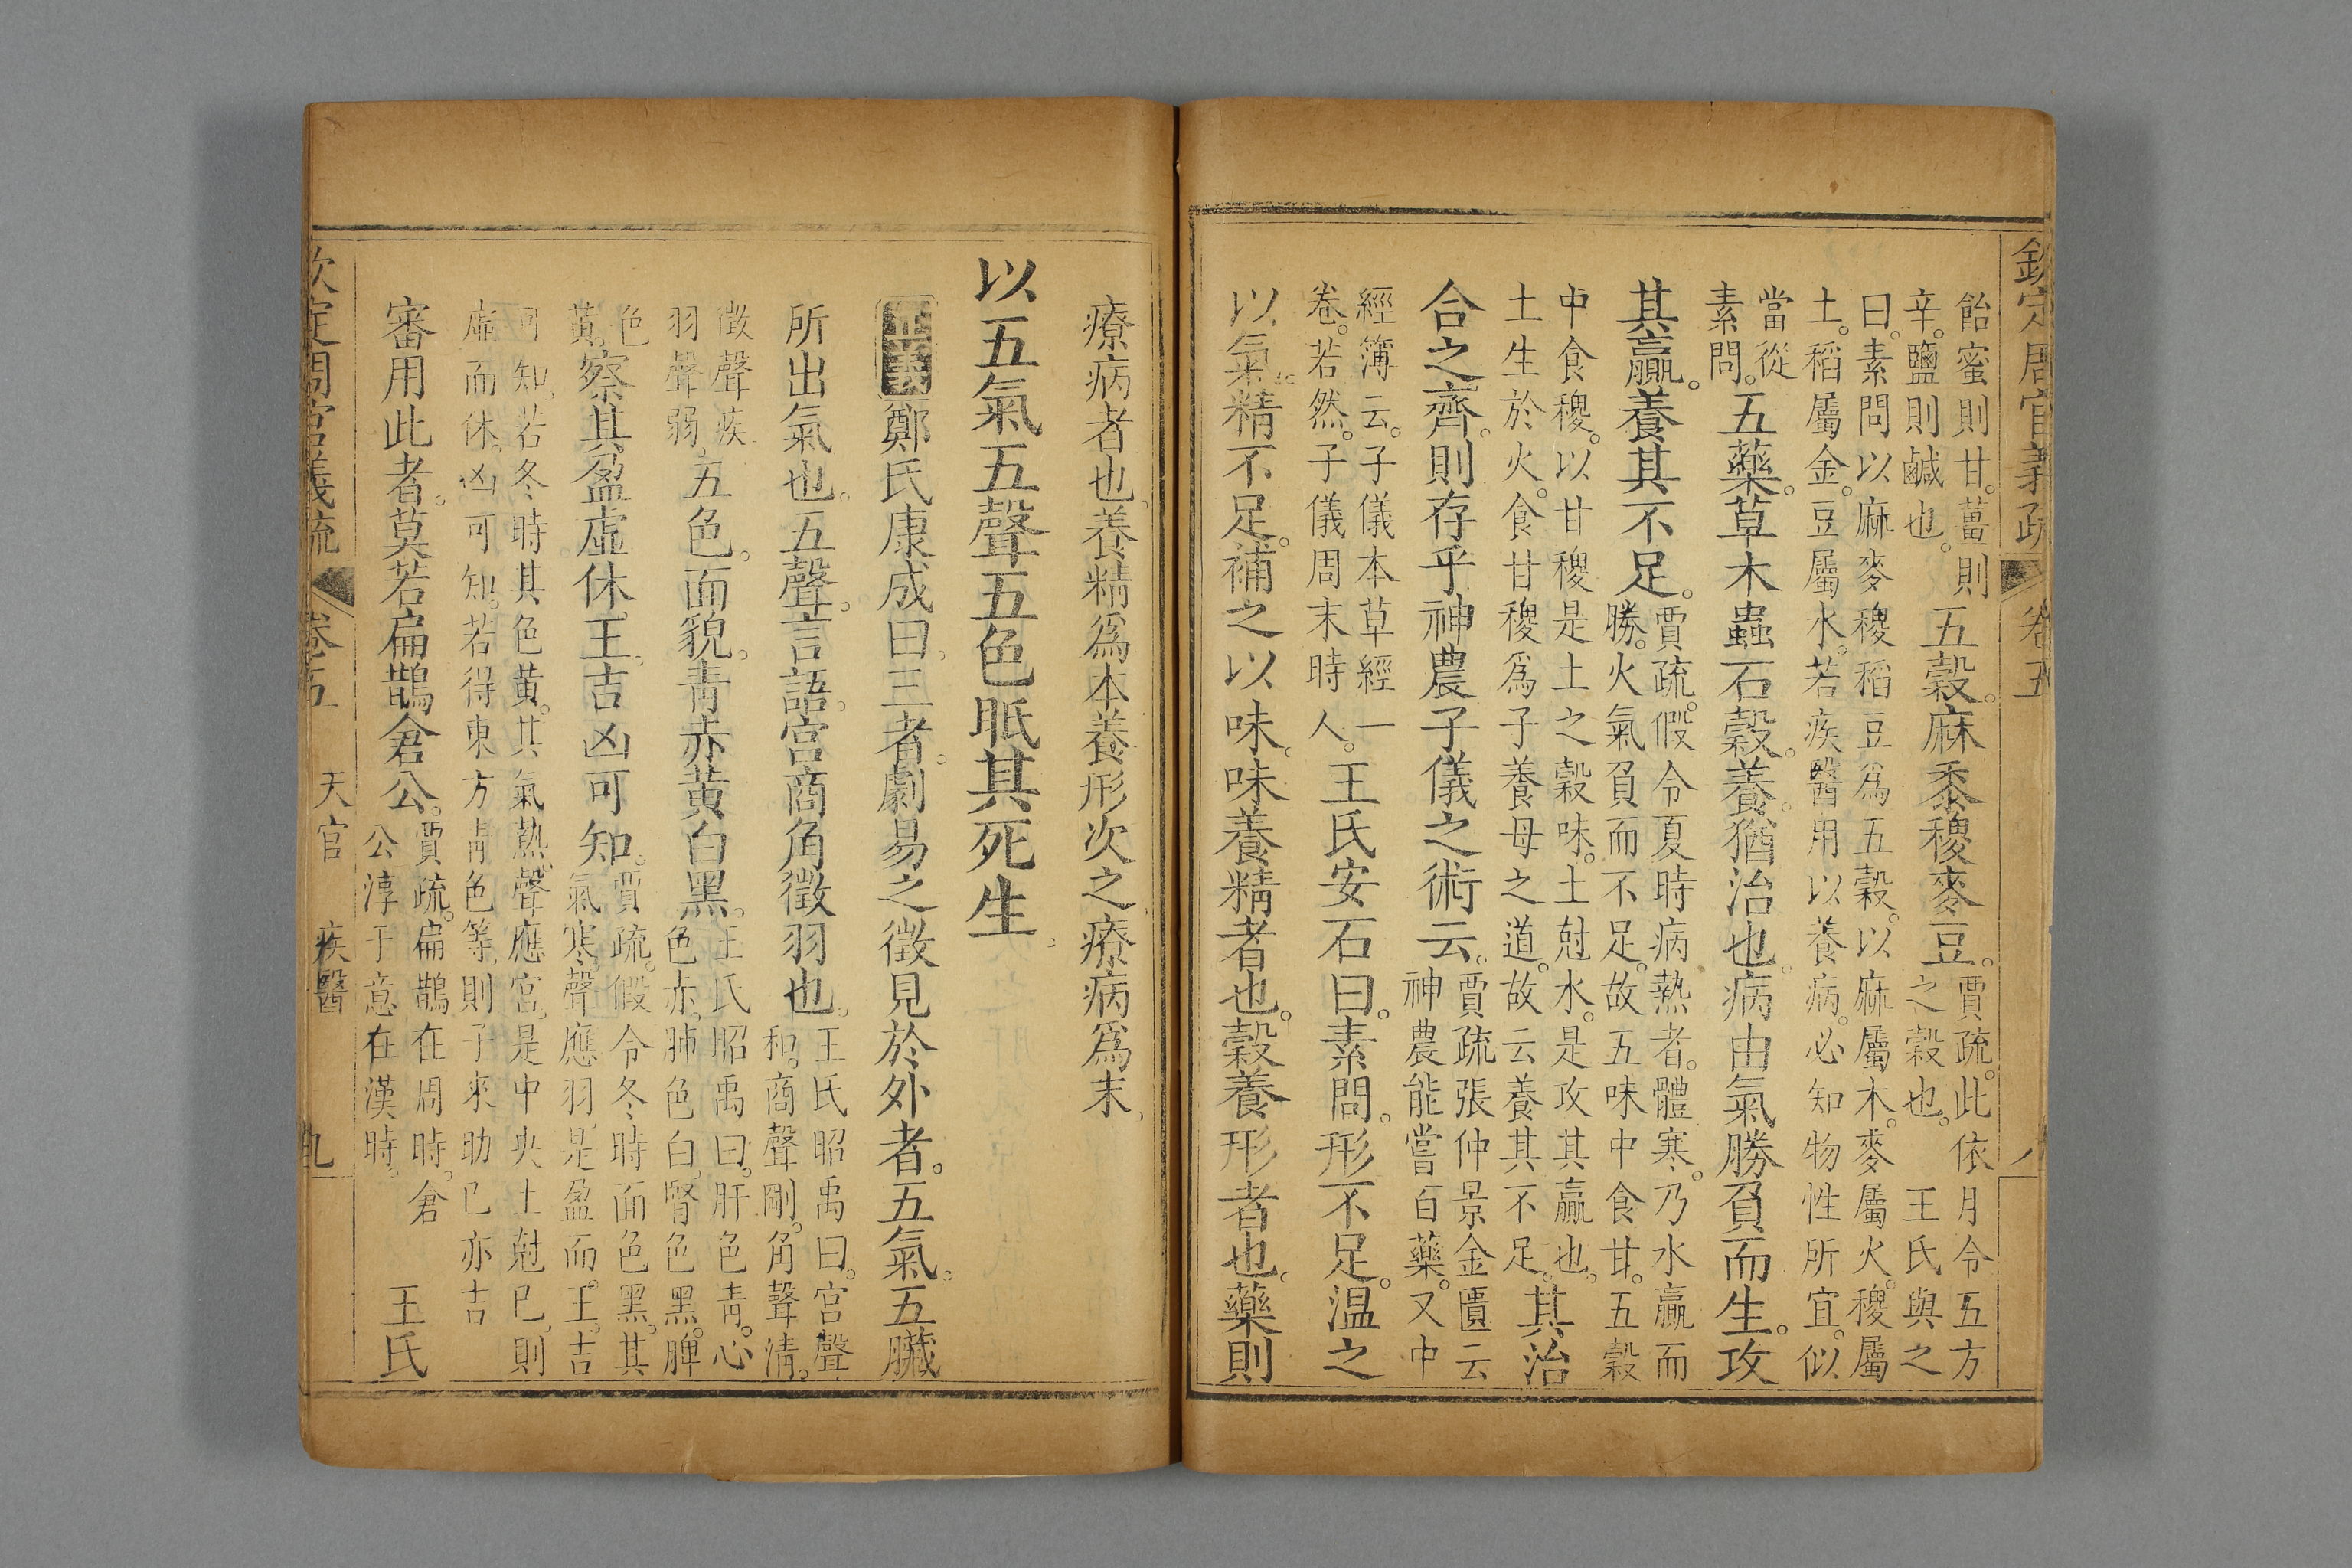 欽定周官義疏 卷五
飴蜜則甘。薑則
辛。鹽則鹹也。
五穀。麻黍稷麥豆。
賈疏。此依月令五方
之穀也。 王氏與之
曰。素問以麻麥稷稻豆爲五穀。以麻屬木。麥屬火。稷屬
土。稻屬金。豆屬水。若疾醫用以養病。必知物性所宜。似
當從
素問。
五藥。草木蟲石穀。養。猶治也。病由氣勝負而生。攻
其贏。養其不足。
賈疏。假令夏時病熱者。體寒。乃水贏而
勝。火氣負而不足。故五味中食甘。五穀
中食稷。以甘稷是土之穀味。土尅水。是攻其贏也。
土生於火。食甘稷爲子養母之道。故云養其不足。
其治
合之齊。則存乎神農子儀之術云。
賈疏。張仲景金匱云
神農能嘗百藥。又中
經簿云。子儀本草經一
卷。若然。子儀周末時人。
王氏安石曰。素問。形不足。温之
以氣。精不足。補之以味。味養精者也。穀養形者也。藥則
療病者也。養精爲本。養形次之。療病爲末。
以五氣五聲五色眡其死生
正義 鄭氏康成曰。三者。劇易之徵見於外者。五氣。五臟
所出氣也。五聲。言語。宮商角徵羽也。
王氏昭禹曰。宮聲
和。商聲剛。角聲淸。
徵聲疾。
羽聲弱。
五色。面貌。靑赤黃白黑。
王氏昭禹曰。肝色靑。心
色赤。肺色白。腎色黑。脾
色
黃。
察其盈虛休王。吉凶可知。
賈疏。假令冬時面色黑。其
氣寒。聲應羽。是盈而王。吉
可知。若冬時其色黃。其氣熱。聲應宮。是中央土尅已。則
虛而休。凶可知。若得東方靑色等。則子來助已亦吉
審用此者。莫若扁鵲倉公。
賈疏。扁鵲在周時。倉
公淳于意在漢時。
王氏
欽定周官義疏 卷五 天官 疾醫 九